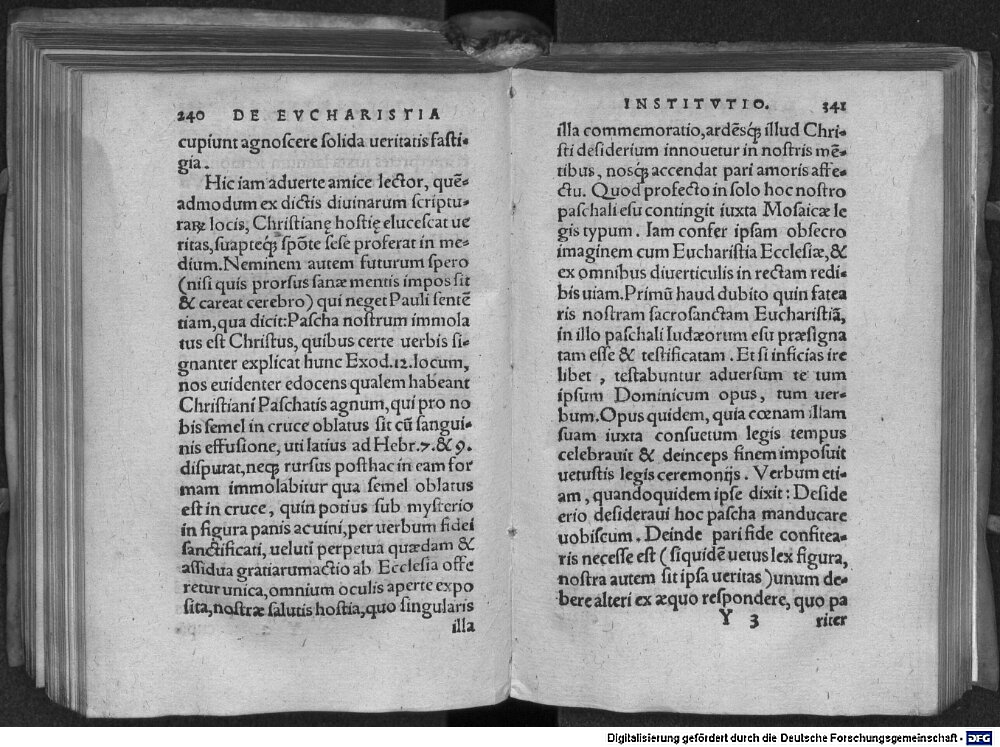 240 DE EVCHARISTIA
cupiunt agnoscere solida ueritatis fasti-
gia.
Hic iam aduerte amice lector, quē-
admodum ex dictis diuinarum scriptu-
raꝝ locis, Christianę hostię elucescat ue
ritas, suapteq́ꝫ spōte sese proferat in me-
dium. Neminem autem futurum spero
(nisi quis prorsus sanæ mentis impos sit
& careat cerebro) qui neget Pauli sentē
tiam, qua dicit: Pascha nostrum immola
tus est Christus, quibus certe uerbis si-
gnanter explicat hunc Exod. 12. locum,
nos euidenter edocens qualem habeant
Christiani Paschatis agnum, qui pro no
bis semel in cruce oblatus sit cū sangui-
nis effusione, uti latius ad Hebr. 7. & 9.
disputat, neqꝫ rursus posthac in eam for
mam immolabitur qua semel oblatus
est in cruce, quin potius sub mysterio
in figura panis ac uini, per uerbum fidei
sanctificati, ueluti perpetua quædam &
assidua gratiarumactio ab Ecclesia offe
retur unica, omnium oculis aperte expo
sita, nostræ salutis hostia, quo singularis
illa
INSTITVTIO. 341
illa commemoratio, ardēsq́ꝫ illud Chri-
sti desiderium innouetur in nostris mē-
tibus, nosq́ꝫ accendat pari amoris affe-
ctu. Quod profecto in solo hoc nostro
paschali esu contingit iuxta Mosaicæ le
gis typum. Iam confer ipsam obsecro
imaginem cum Eucharistia Ecclesiæ, &
ex omnibus diuerticulis in rectam redi-
bis uiam. Primū haud dubito quin fatea
ris nostram sacrosanctam Eucharistiā,
in illo paschali Iudæorum esu præsigna
tam esse & testificatam. Et si inficias ire
libet, testabuntur aduersum te tum
ipsum Dominicum opus, tum uer-
bum. Opus quidem, quia cœnam illam
suam iuxta consuetum legis tempus
celebrauit & deinceps finem imposuit
uetustis legis ceremonijs. Verbum eti-
am, quandoquidem ipse dixit: Deside
erio desideraui hoc pascha manducare
uobiscum. Deinde pari fide confitea-
ris necesse est (siquidē uetus lex figura,
nostra autem sit ipsa ueritas) unum de-
bere alteri ex æquo respondere, quo pa
Y 3 riter
Digitalisierung gefördert durch die Deutsche Forschungsgemeinschaft - DFG